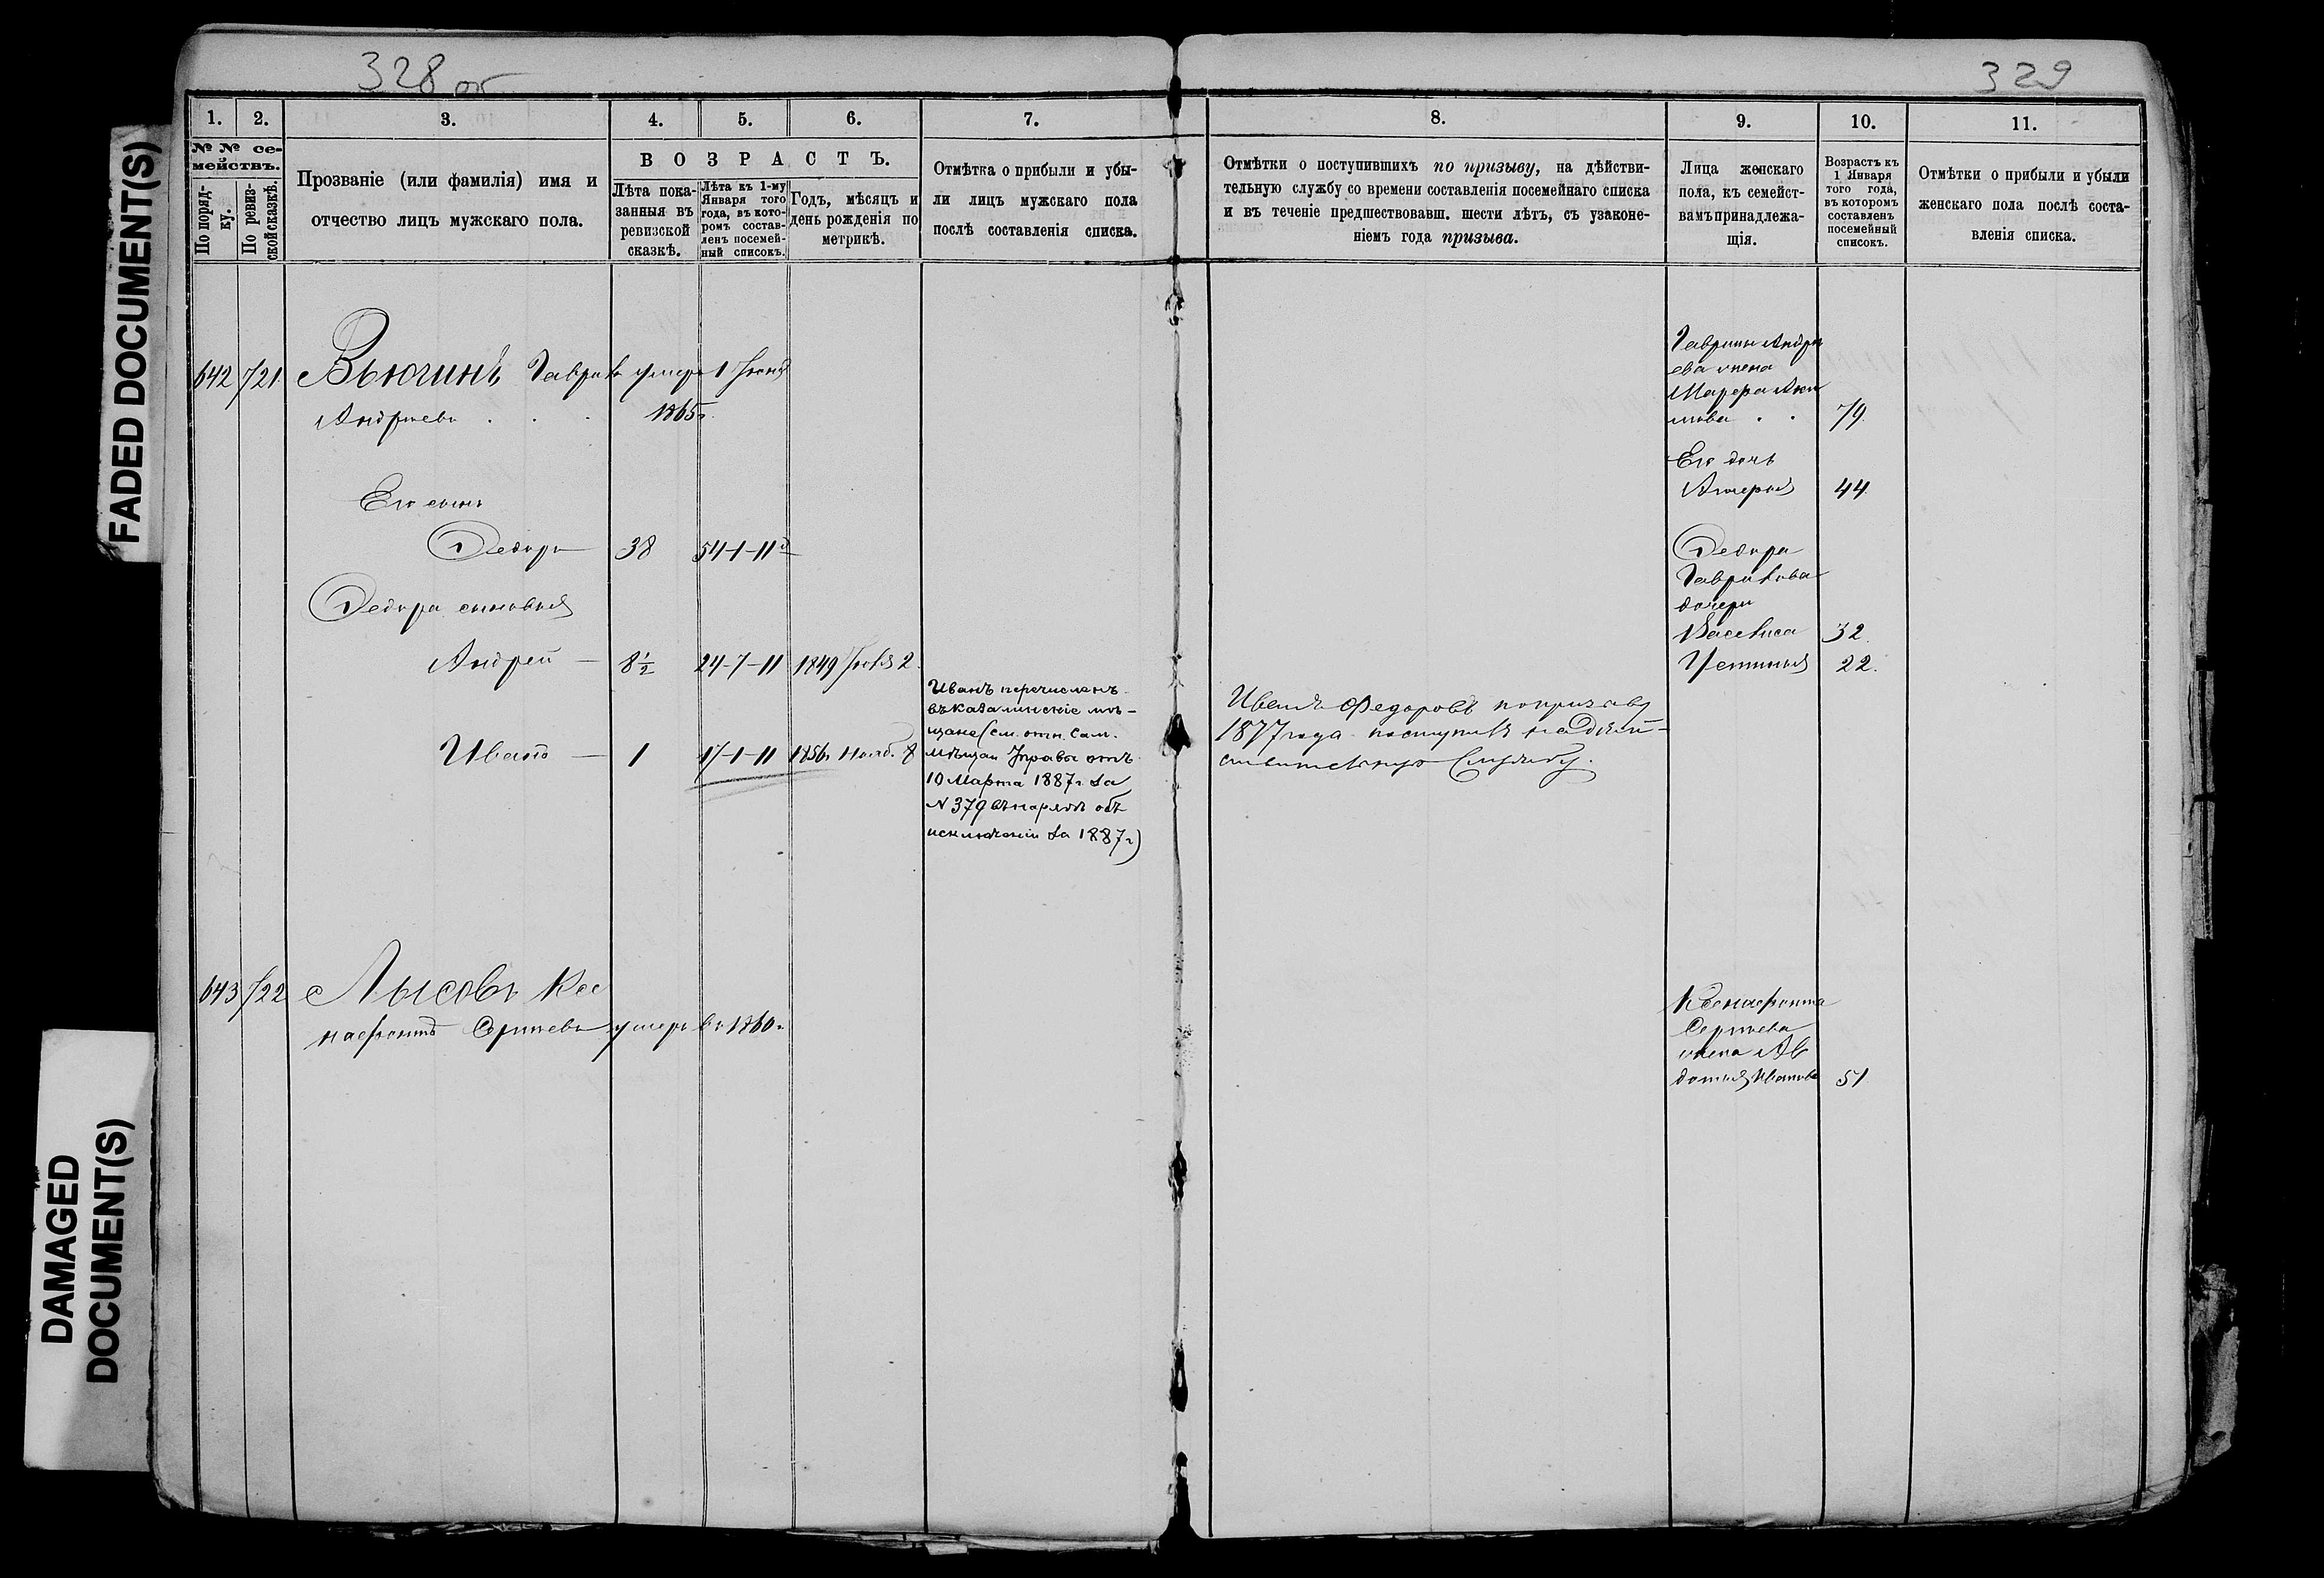 328 об
329
FADED DOCUMENT(S)
DAMAGED
DOCUMENT(S)
1.
2.
3.
4.
5.
6.
7.
8.
9.
10.
11.
№ № се-
мействъ.
По поряд-
ку.
По ревиз-
ской сказкѣ.
Прозваніе (или фамилія) имя и
отчество лицъ мужскаго пола.
ВОЗРАСТЪ.
Лѣта пока-
занныя въ
ревизской
сказкѣ.
Лѣта къ 1-му
Января того
года, въ кото-
ромъ состав-
ленъ посемей-
ный списокъ.
Годъ, мѣсяцъ и
день рожденія по
метрикѣ.
Отмѣтка о прибыли и убы-
ли лицъ мужскаго пола
послѣ составленія списка.
Отмѣтки о поступившихъ по призыву, на дѣйстви-
тельную службу со времени составленія посемейнаго списка
и въ теченіе предшествовавш. шести лѣтъ, съ узаконе-
ніемъ года призыва.
Лица женскаго
пола, къ семейст-
вамъ принадлежа-
щія.
Возрастъ къ
1 Января
того года,
въ которомъ
составленъ
посемейный
списокъ.
Отмѣтки о прибыли и убыли
женскаго пола послѣ соста-
вленія списка.
642 721 Вьюгинъ Гаврила умеръ 1 Іюня
Андреевъ . . . 1865г.
Его сынъ
Ѳедоръ 38 54-1-11
Ѳедора сыновья
Андрей 8½ 24-7-11 1849 2
Иванъ 1 17-1-11 1856г Нояб. 8
Иванъ перечисленъ
въ казалинскіе мѣ-
щане (см. отн. Сам.
мѣщан Управы отъ
10 Марта 1887г за
N 379 въ нарядѣ объ
исключеніи за 1887г)
Иванъ Федоровъ по призыву
1877 года поступилъ на дѣй-
ствительную Службу.
Гаврилы Андре
ева жена
Марфа Аки
мова . . 79.
Его дочь
44
Ѳедора
Гаврилова
дочери
Васелиса 32.
Устинья 22.
643 722 Лысовъ Ксе
нафонтъ Сергѣевъ умеръ въ 1860г
Ксенафонта
Сергѣева
жена Ав
дотья Иванова 51